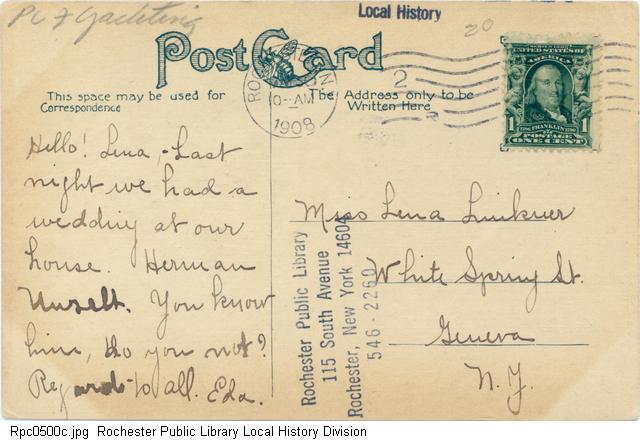 PC F Yachting
Local History
20
Post Card
This space may be used for
Correspondence
The Address only to be
Written Here
10-AM
1908
2
R
POSTAGE
UNITED STATES OF
AMERICA
FRANKLIN
1 1
ONE CENT
Hello! Lena,-Last
night we had a
wedding at our
house. Herman
Unzelt. You know
him, do you not?
Regards to all. Eda.
Miss Lena Linkner
White Spring St.
Geneva
N.Y.
Rochester Public Library
115 South Avenue
Rochester, New York 14604
546-2260
Rpc0500c.jpg Rochester Public Library Local History Division